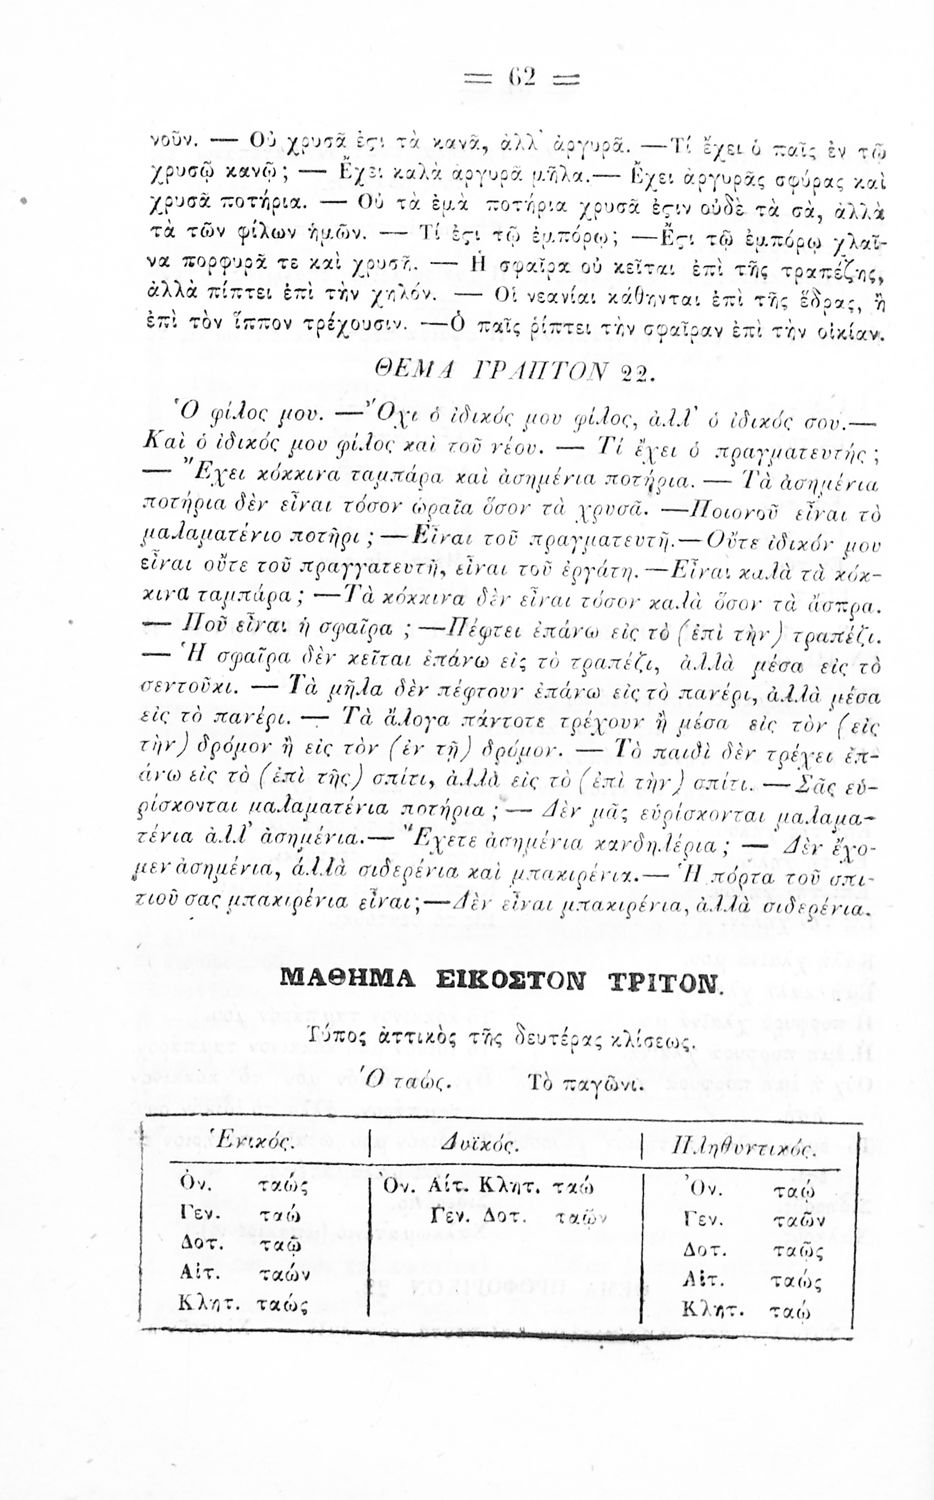 = 62 =
νοῦν. — Οὐ χρυσᾶ ἐϛι τὰ κανᾶ, ἀλλ' ἀργυρᾶ. —Τί ἔχει ὁ παῖς ἐν τῷ
χρυσῷ κανῷ; — Ἔχει καλὰ ἀργυρᾶ μῆλα.— Ἔχει ἀργυρᾶς σφύρας καὶ
χρυσᾶ ποτήρια. — Οὐ τὰ ἐμὰ ποτήρια χρυσᾶ ἐϛιν οὐδὲ τὰ σὰ, ἀλλὰ
τὰ τῶν φίλων ἡμῶν. — Τί ἐϛι τῷ ἐμπόρῳ; —Ἔϛι τῷ ἐμπόρῳ χλαῖ-
να πορφυρᾶ τε καὶ χρυσῆ. — Ἡ σφαῖρα οὐ κεῖται ἐπὶ τῆς τραπέζης,
ἀλλὰ πίπτει ἐπὶ τὴν χηλόν. — Οἱ νεανίαι κάθηνται ἐπὶ τῆς ἕδρας, ἢ
ἐπὶ τὸν ἵππον τρέχουσιν. —Ὁ παῖς ῥίπτει τὴν σφαῖραν ἐπὶ τὴν οἰκίαν.
ΘΕΜΑ ΓΡΑΠΤΟΝ 22.
Ὁ φίλος μου. —Ὄχι ὁ ἰδικός μου φίλος, ἀλλ' ὁ ἰδικός σου.—
Καὶ ὁ ἰδικός μου φίλος καὶ τοῦ νέου. — Τί ἔχει ὁ πραγματευτής ;
— Ἔχει κόκκινα ταμπάρα καὶ ἀσημένια ποτήρια. — Τὰ ἀσημένια
ποτήρια δὲν εἶναι τόσον ὡραῖα ὅσον τὰ χρυσᾶ. —Ποιονοῦ εἶναι τὸ
μαλαματένιο ποτῆρι ; —Εἶναι τοῦ πραγματευτῆ.—Οὔτε ἰδικόν μου
εἶναι οὔτε τοῦ πραγγατευτῆ, εἶναι τοῦ ἐργάτη.—Εἶναι καλὰ τὰ κόκ-
κινα ταμπάρα ; —Τὰ κόκκινα δὲν εἶναι τόσον καλὰ ὅσον τὰ ἄσπρα.
— Ποῦ εἶναι ἡ σφαῖρα ; —Πέφτει ἐπάνω εἰς τὸ (ἐπὶ τὴν) τραπέζι.
— Ἡ σφαῖρα δὲν κεῖται ἐπάνω εἰς τὸ τραπέζι, ἀλλὰ μέσα εἰς τὸ
σεντοῦκι. — Τὰ μῆλα δὲν πέφτουν ἐπάνω εἰς τὸ πανέρι, ἀλλὰ μέσα
εἰς τὸ πανέρι. — Τὰ ἄλογα πάντοτε τρέχουν ἢ μέσα εἰς τὸν (εἰς
τὴν) δρόμον ἢ εἰς τὸν (ἐν τῇ) δρόμον. — Τὸ παιδὶ δὲν τρέχει ἐπ-
άνω εἰς τὸ (ἐπὶ τῆς) σπίτι, ἀλλὰ εἰς τὸ (ἐπὶ τὴν) σπίτι. —Σᾶς εὑ-
ρίσκονται μαλαματένια ποτήρια ; — Δὲν μᾶς εὑρίσκονται μαλαμα-
τένια ἀλλ' ἀσημένια.— Ἔχετε ἀσημένια κανδηλέρια ; — Δὲν ἔχο-
μεν ἀσημένια, ἀλλὰ σιδερένια καὶ μπακιρένια.— Ἡ πόρτα τοῦ σπι-
τιοῦ σας μπακιρένια εἶναι;—Δὲν εἶναι μπακιρένια, ἀλλὰ σιδερένια.
ΜΑΘΗΜΑ ΕΙΚΟΣΤΟΝ ΤΡΙΤΟΝ.
Τύπος ἀττικὸς τῆς δευτέρας κλίσεως.
Ὁ ταώς. Τὸ παγῶνι.
Ἑνικός. | Δυϊκός. | Πληθυντικός.
Ὀν. ταώς Ὀν. Αἰτ. Κλητ. ταώ Ὀν. ταῴ
Γεν. ταώ Γεν. Δοτ. ταῷν Γεν. ταῶν
Δοτ. ταῷ Δοτ. ταῷς
Αἰτ. ταών Αἰτ. ταώς
Κλητ. ταώς Κλητ. ταῴ